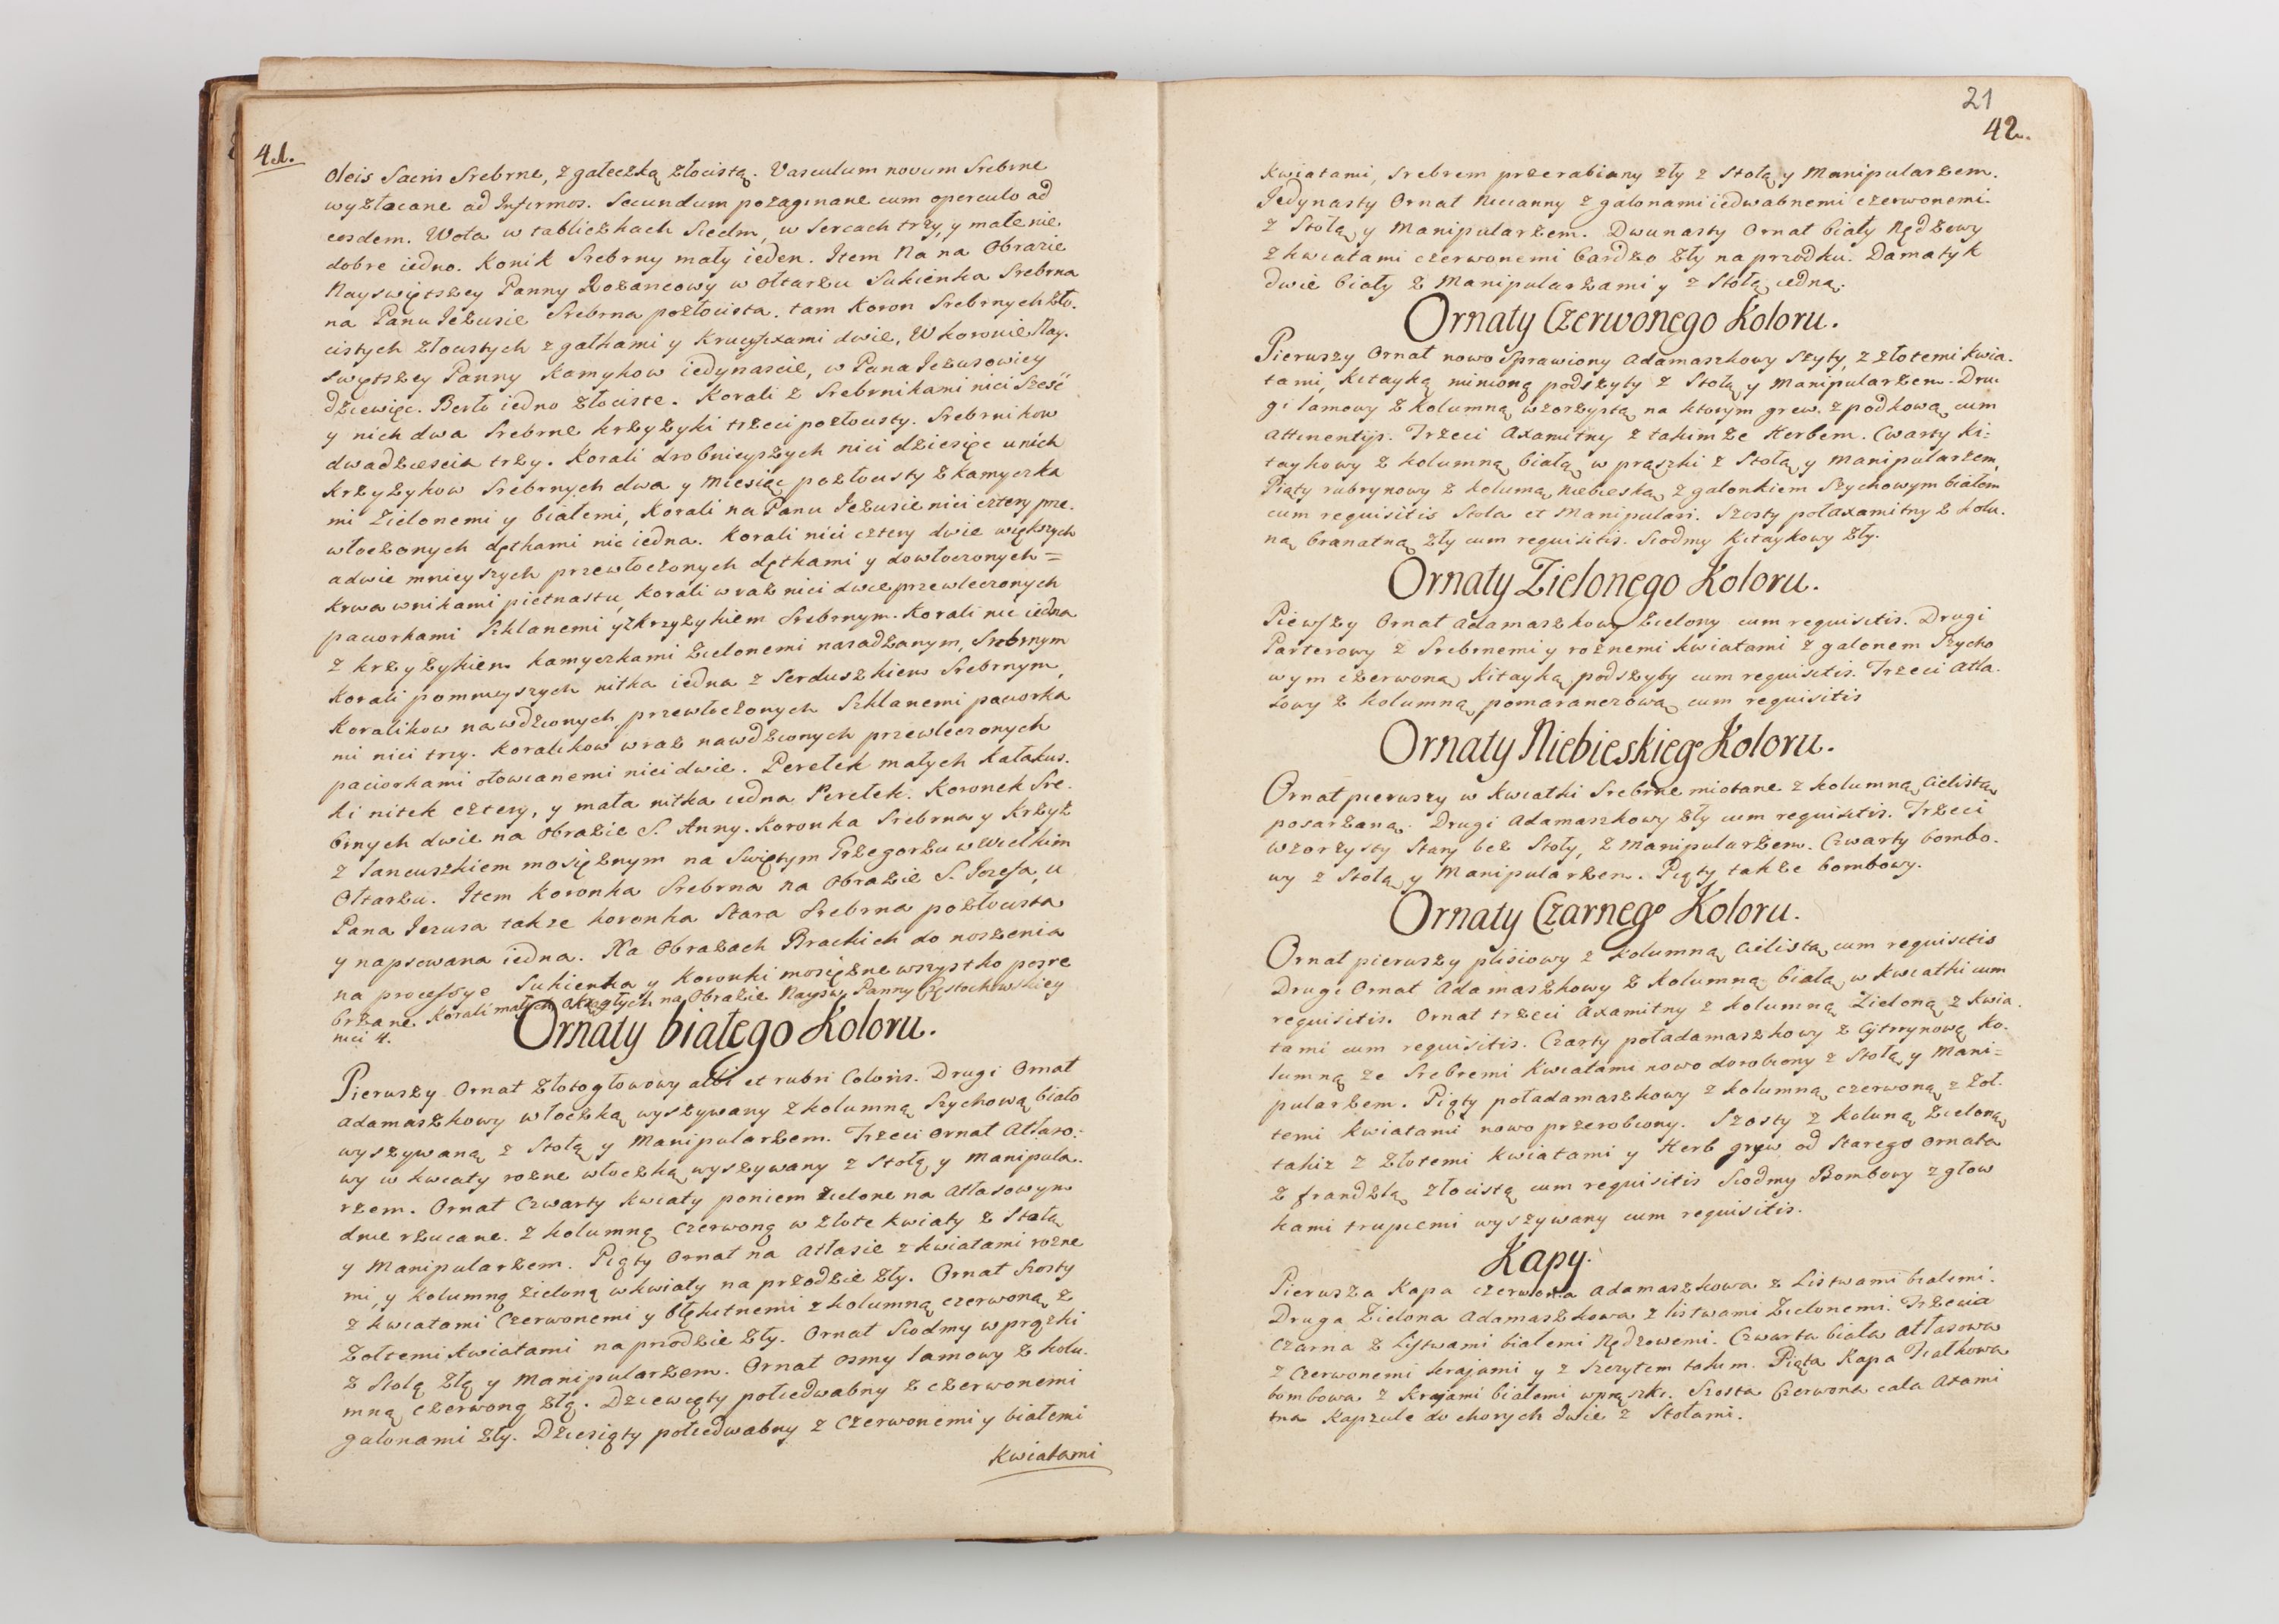 41.
Oleis Sacris Srebrne, z gałeczką złocistą. Vasculum novum Srebrne
wyzłacane ad Infirmos. Secundum pozaginane cum operculo ad
eosdem. Wota w tabliczkach Siedm, w Sercach trzy, y małe nie
dobre iedno. Konik Srebrny mały ieden. Item Na na Obrazie
Nayswiętszey Panny Rożancowy w Ołtarzu Sukienka Srebrna
na Panu Jezusie Srebrna pozłocista. tam Koron Srebrnych zło-
cistych złocistych z gałkami y Krucyfixami dwie, W koronie Nay-
swiętszey Panny Kamykow iedynascie, w Pana Jezusowiey
dziewięc. Berło iedno złociste. Korali z Srebrnikami nici Szesć
y nich dwa Srebrne krzyżyki trzeci pozłocisty. Srebrnikow
dwadziescia trzy. Korali drobnieyszych nici dziesięc u nich
krzyżykow Srebrnych dwa y Miesiąc pozłocisty z kamyczka
mi zielonemi y białemi, Korali na Panu Jezusie nici cztery prze-
włoczonych dętkami nic iedna. Korali nici cztery dwie większych
a dwie mnieyszych przewłoczonych dętkami y dowłoczonych=
krwawnikami pietnastu, Korali wraz nici dwie przewleczonych
paciorkami szklanemi y z krzyżykiem Srebrnym. Korali nic iedna
z krzyżykiem kamyczkami zielonemi nasadzanym, Srebrnym
Korali pomnieyszych nitka iedna z Serduszkiem Srebrnym,
Koralikow nawdzionych przewłoczonych Szklanemi paciorka
mi nici trzy. Koralikow wraz nawdzionych przewleczonych
paciorkami ołowianemi nici dwie. Perełek małych Kałakus-
ki nitek cztery, y mała nitka iedna Perełek. Koronek Sre-
brnych dwie na Obrazie S. Anny. Koronka Srebrna y Krzyż
z łancuszkiem mosiężnym na Swiętym Grzegorzu w Wielkim
Ołtarzu. Item Koronka Srebrna na Obrazie S. Jozefa, u
Pana Jezusa takze koronka Stara Srebrna pozłocista
y napsowana iedna. Na Obrazach Brackich do noszenia
na processyę Sukienka y Koronki mosiężne wszystko posre
brzane. Korali małych okrągłych na Obrazie Naysw. Panny Częstochowskiey
nici 4.
Ornaty białego Koloru.
Pierwszy Ornat Złotogłowowy albi et rubri Coloris. Drugi Ornat
adamaszkowy włoczką wyszywany z kolumną Szychową biało
wyszywaną z Stołą y Manipularzem. Trzeci Ornat Atłaso-
wy w kwiaty rozne włoczką wyszywany z Stołą y Manipula-
rzem. Ornat Czwarty kwiaty poniem zielone na Atłasowym
dnie rzucane. z kolumną Czerwoną w złote kwiaty z Stołą
y Manipularzem. Piąty Ornat na Atłasie z kwiatami rozne
mi, y kolumną zieloną w kwiaty na przodzie zły. Ornat Szosty
z kwiatami Czerwonemi y błękitnemi z kolumną czerwoną z
żołtemi kwiatami na przodzie zły. Ornat Siodmy w prążki
z Stołą złą y Manipularzem. Ornat osmy lamowy z kolu-
mną czerwoną złą. Dziewiąty połiedwabny z czerwonemi
galonami zły. Dziesiąty połiedwabny z Czerwonemi y białemi
Kwiatami
21
42.
kwiatami, Srebrem przerabiany zły z Stołą y Manipularzem.
Jedynasty Ornat Nicianny z galonami iedwabnemi czerwonemi.
z Stołą y Manipularzem. Dwunasty Ornat biały Rądzowy
z kwiatami czerwonemi bardzo zły na przodku. Damatyk
dwie biały z Manipularzami y z Stołą iedną.
Ornaty Czerwonego Koloru.
Pierwszy Ornat nowo Sprawiony Adamaszkowy Szyty, z złotemi kwia-
tami, Kitayką minioną podszyty z Stołą y Manipularzem. Dru-
gi lamowy z kolumną wzorzystą na ktorym grew. z podkową cum
attinentijs. Trzeci Axamitny z takimze Herbem. Cwarty Ki-
taykowy z kolumną białą w prążki z Stołą y Manipularzem
Piąty rubrynowy z kolumą niebieską z galonkiem Szychowym białom
cum requisitis Stola et Manipulari. Szosty połaxamitny z kolu-
ną branatną zły cum requisitis. Siodmy Kitaykowy zły.
Ornaty Zielonego Koloru.
Piewszy Ornat adamaszkowy zielony cum requisitis. Drugi
Parterowy z Srebrnemi y roznemi kwiatami z galonem Szycho
wym czerwoną Kitayką podszyty cum requisitis. Trzeci Atła-
sowy z kolumną pomaranczową cum requisitis
Ornaty Niebieskiego Koloru.
Ornat pierwszy w kwiatki Srebrne miotane z kolumną Cielistą
posarzaną. Drugi Adamaszkowy zły cum requisitis. Trzeci
wzorzysty Stary bez Stoły, z Manipularzem. Czwarty bombo-
wy z Stolą y Manipularzem. Piąty takze bombowy.
Ornaty Czarnego Koloru.
Ornat pierwszy plisiowy z kolumną Cielistą cum requisitis
Drugi Ornat Adamaszkowy z kolumną białą w kwiatki cum
requisitis. Ornat trzeci Axamitny z kolumną Zieloną z kwia-
tami cum requisitis. Czarty poładamaszkowy z Cytrynową ko-
lumną ze Srebremi kwiatami nowo dorobiony z Stołą y Mani=
pularzem. Piąty poładamaszkowy z kolumną czerwoną z żoł-
temi kwiatami nowo przerobiony. Szosty z koluną zieloną
takiz z złotemi kwiatami y Herb gryw od Starego ornata
z frandzlą złocistą cum requisitis Siodmy Bombowy z głow
kami trupiemi wyszywany cum requisitis.
Kapy.
Pierwsza Kapa czerwona Adamaszkowa z Listwami białemi.
Druga Zielona Adamaszkowa z listwami Zielonemi. Trzecia
Czarna z Lystwami białemi Rądzowemi. Czwarta biała atłasowa
z Czerwonemi krajami y z Szczytem takim. Piąta Kapa Fiałkowa
bombowa z Krajami białemi w prążki. Szosta Czerwona cała Axami
tna Kapzule do chorych dwie z Stołami.